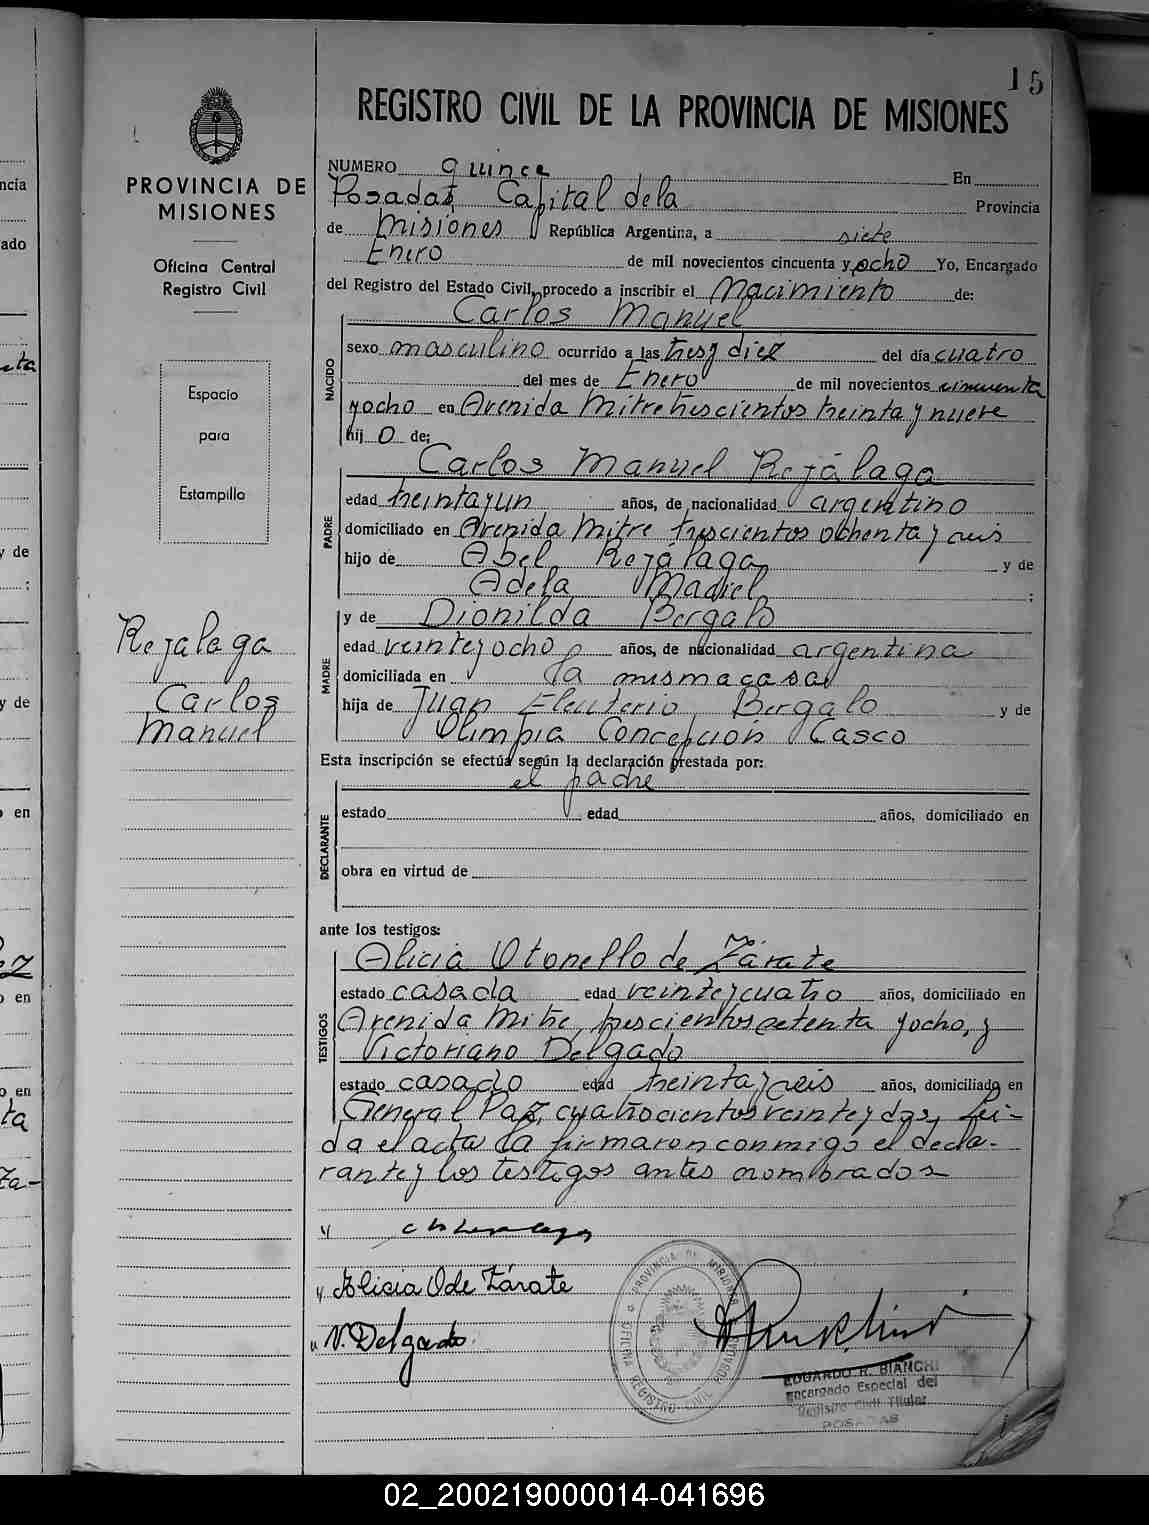 15
REGISTRO CIVIL DE LA PROVINCIA DE MISIONES
PROVINCIA DE
MISIONES
Oficina Central
Registro Civil
Espacio
para
Estampilla
Rejalaga
Carlos
Manuel
NUMERO quince En
Posadas, Capital de la Provincia
de Misiones República Argentina, a siete
Enero de mil novecientos cincuenta y ocho Yo, Encargado
del Registro del Estado Civil, procedo a inscribir el Nacimiento de:
NACIDO
Carlos Manuel
sexo masculino ocurrido a las tres y diez del día cuatro
del mes de Enero de mil novecientos cincuenta
y ocho en Avenida Mitre trescientos treinta y nueve
hij o de:
PADRE
Carlos Manuel Rejálaga
edad treinta y un años, de nacionalidad argentino
domiciliado en Avenida Mitre trescientos ochenta y seis
hijo de Abel Rejálaga y de
Adela Madiel ;
MADRE
y de Dionilda Bergalo
edad veinte y ocho años, de nacionalidad argentina
domiciliada en la misma casa
hija de Juan Eleuterio Bergalo y de
Olimpia Concepción Casco
Esta inscripción se efectúa según la declaración prestada por:
DECLARANTE
el padre
estado edad años, domiciliado en
obra en virtud de
ante los testigos:
TESTIGOS
Alicia Otonello de Zárate
estado casada edad veinte y cuatro años, domiciliado en
Avenida Mitre, trescientos setenta y ocho, y
Victoriano Delgado
estado casado edad treinta y seis años, domiciliado en
General Paz, cuatrocientos veinte y dos, lei-
da el acta la firmaron conmigo el decla-
rante y los testigos antes nombrados
Alicia O de Zárate
V. Delgado
PROVINCIA DE MISIONES
OFICINA REGISTRO CIVIL POSADAS
EDUARDO R. BIANCHI
Encargado Especial del
Registro Civil Titular
POSADAS
02_200219000014-041696